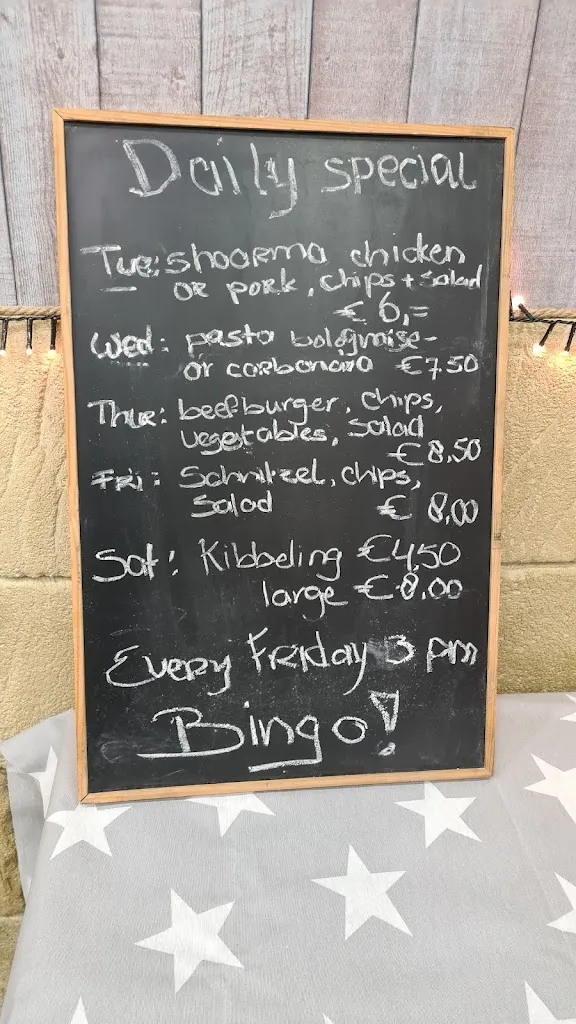 Daily special
Tue: shoarma chicken
or pork, chips + salad
€ 6,=
Wed: pasta bolognaise-
or carbonara €7.50
Thur: beefburger, chips,
vegestables, salad
€ 8,50
Fri: Schnitzel, chips,
salad € 8,00
Sat: Kibbeling €4,50
large €8,00
Every Friday 3 pm
Bingo!